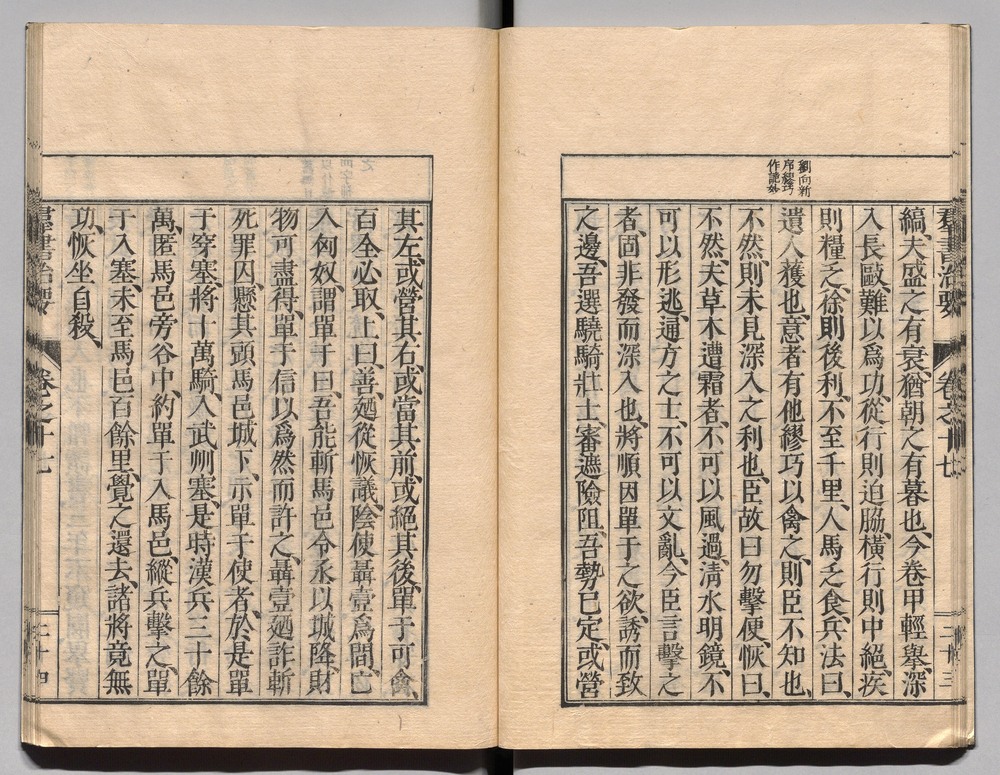 劉向新
序繆巧
作詭妙
縞、夫盛之有衰、猶朝之有暮也、今卷甲輕舉、深
入長敺、難以爲功、從行則迫脇、橫行則中絕、疾
則糧乏、徐則後利、不至千里、人馬乏食、兵法曰、
遺人獲也、意者有他繆巧以禽之、則臣不知也、
不然、則未見深入之利也、臣故曰勿擊便、恢曰、
不然、夫草木遭霜者、不可以風過、淸水明鏡、不
可以形逃、通方之士、不可以文亂、今臣言擊之
者、固非發而深入也、將順因單于之欲、誘而致
之邊、吾選驍騎壯士、審遮險阻、吾勢已定、或營
羣書治要 卷之十七 二十三
其左、或營其右、或當其前、或絕其後、單于可禽、
百全必取、上曰、善、廼從恢議、陰使聶壹爲間、亡
入匈奴、謂單于曰、吾能斬馬邑令丞以城降、財
物可盡得、單于信以爲然而許之、聶壹廼詐斬
死罪囚、懸其頭馬邑城下、示單于使者、於是單
于穿塞、將十萬騎、入武州塞、是時漢兵三十餘
萬、匿馬邑旁谷中、約單于入馬邑、縱兵擊之、單
于入塞、未至馬邑百餘里、覺之還去、諸將竟無
功、恢坐自殺、
羣書治要 卷之十七 二十四